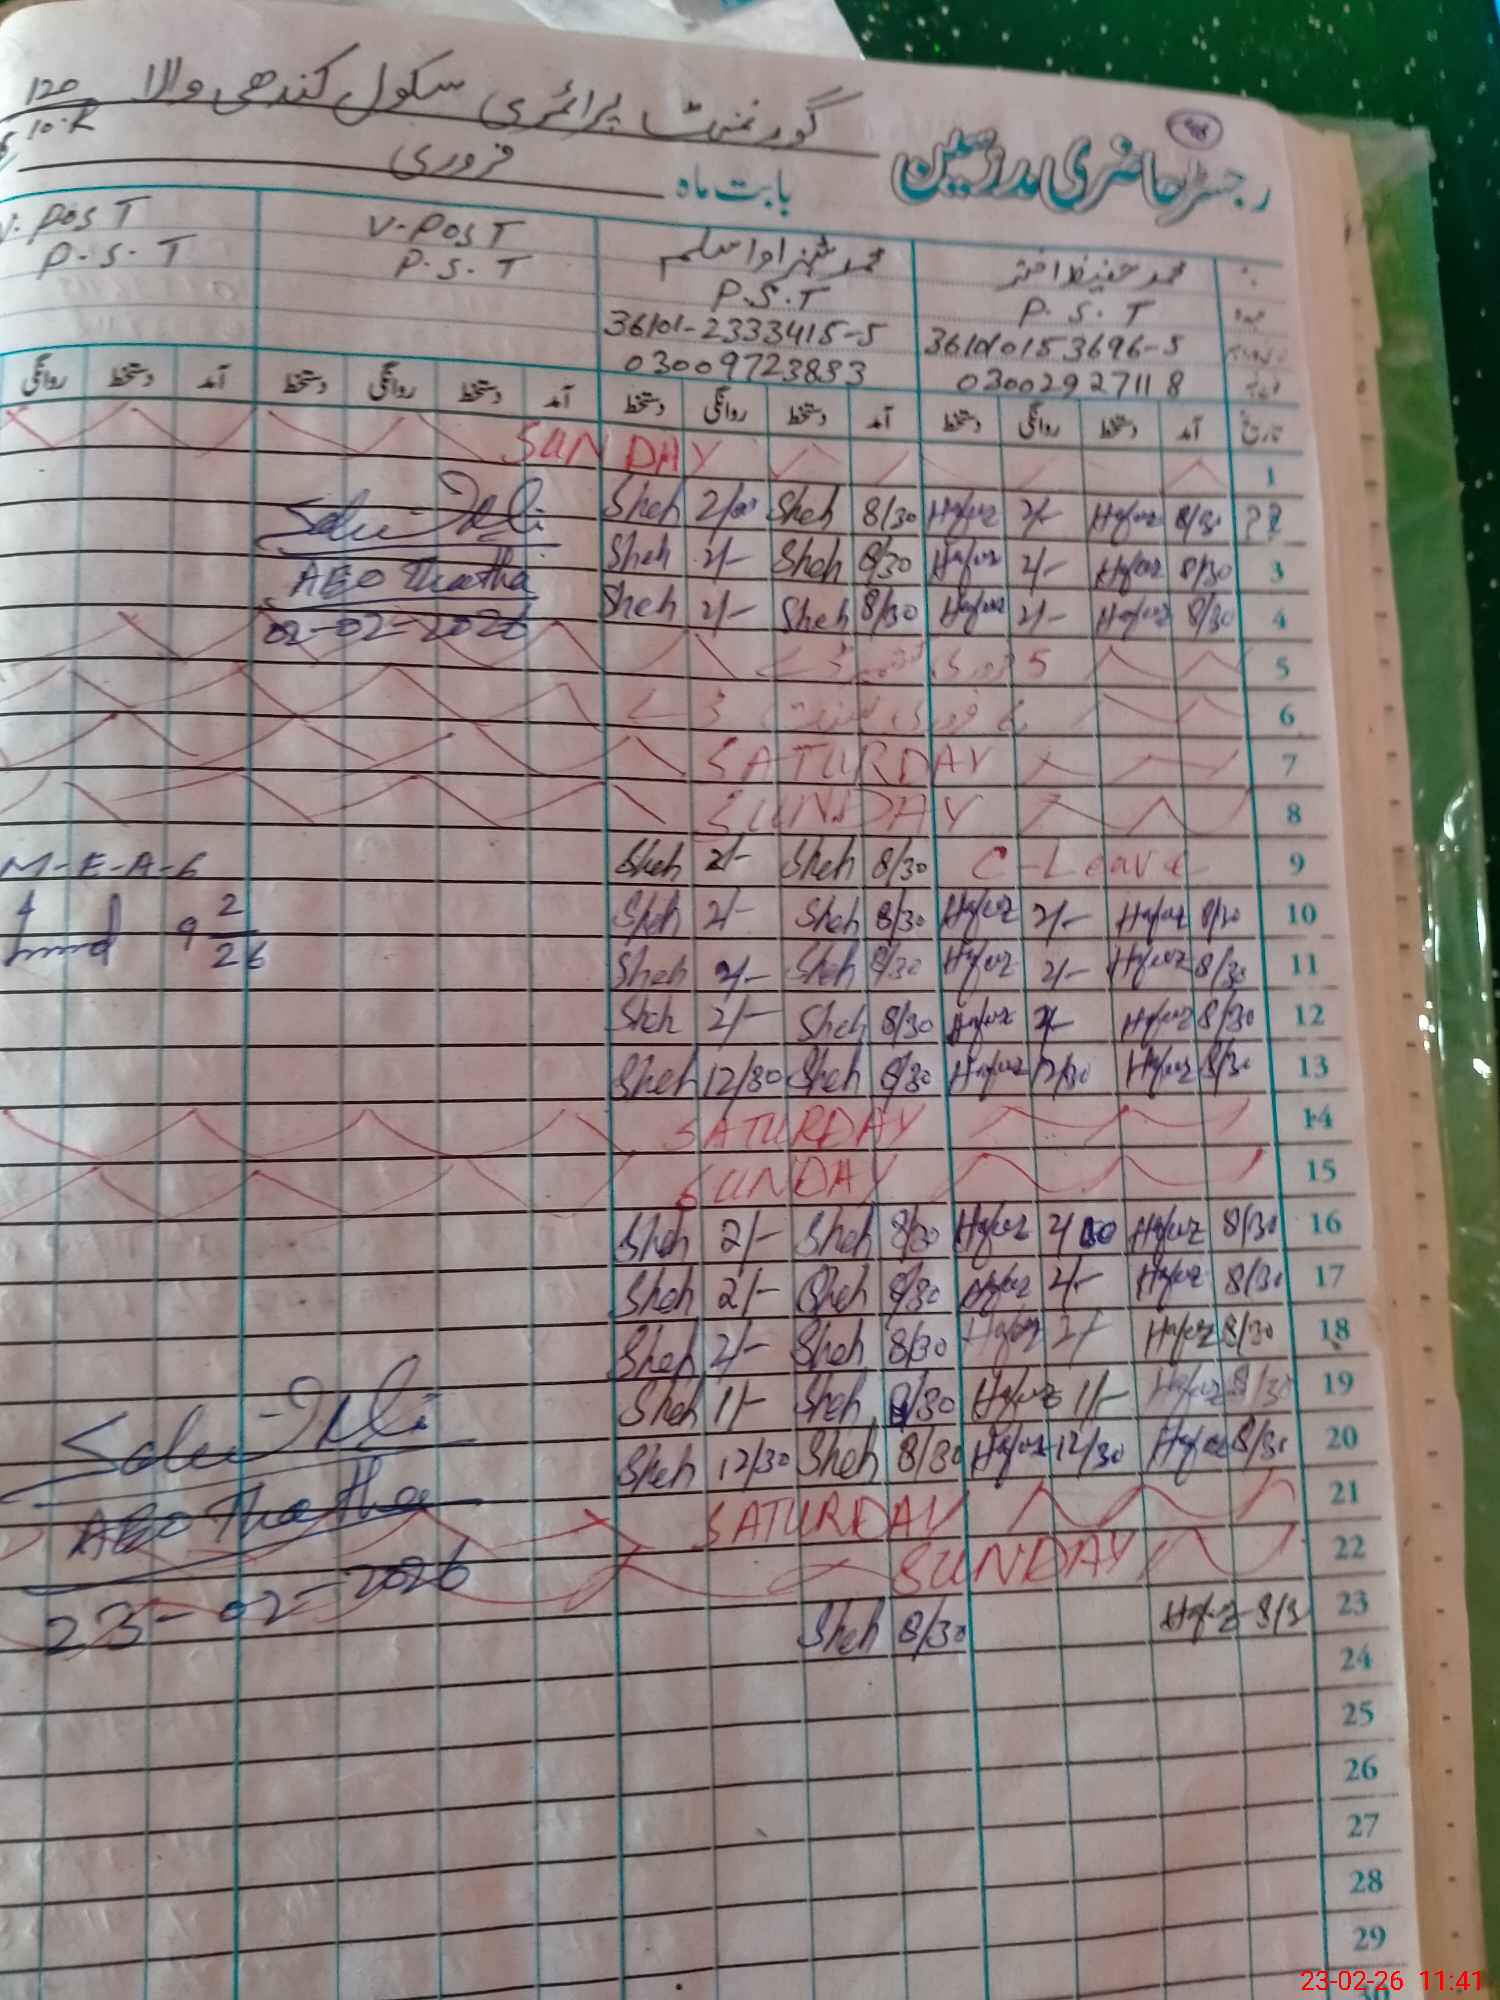 گورنمنٹ پرائمری سکول کندھی والا
120
10.R
رجسٹر حاضری مدرسین
بابت ماہ فروری
محمد حفیظ اختر
محمد شہزاد اسلم
V-Post
V-Post
P.S.T
P.S.T
P.S.T
P.S.T
36101-2333415-5
03009723833
03002927118
تاریخ آمد دستخط روانگی دستخط آمد دستخط روانگی دستخط آمد دستخط روانگی دستخط آمد دستخط روانگی
SUNDAY 1
Sheh 2/00 Sheh 8/30 Hafeez 2/- Hafeez 8/30 2
Sheh 2/- Sheh 8/30 Hafeez 2/- Hafeez 8/30 3
AEO Thatha
Sheh 2/- Sheh 8/30 Hafeez 2/- Hafeez 8/30 4
02-02-2026
5 فروری 5
6 فروری 6
SATURDAY 7
SUNDAY 8
M-E-A-6
Sheh 2/- Sheh 8/30 C-Leave 9
Sheh 2/- Sheh 8/30 Hafeez 2/- Hafeez 8/30 10
9 2/26
Sheh 2/- Sheh 8/30 Hafeez 2/- Hafeez 8/30 11
Sheh 2/- Sheh 8/30 Hafeez 2/- Hafeez 8/30 12
Sheh 12/30 Sheh 8/30 Hafeez 12/30 Hafeez 8/30 13
SATURDAY 14
SUNDAY 15
Sheh 2/- Sheh 8/30 Hafeez 2/00 Hafeez 8/30 16
Sheh 2/- Sheh 8/30 Hafeez 2/- Hafeez 8/30 17
Sheh 2/- Sheh 8/30 Hafeez 2/- Hafeez 8/30 18
Sheh 1/- Sheh 8/30 Hafeez 1/- Hafeez 8/30 19
Sheh 12/30 Sheh 8/30 Hafeez 12/30 Hafeez 8/30 20
AEO Thatha
SATURDAY 21
SUNDAY 22
23-02-2026
Sheh 8/30 Hafeez 8/3 23
24
25
26
27
28
29
30
23-02-26 11:41